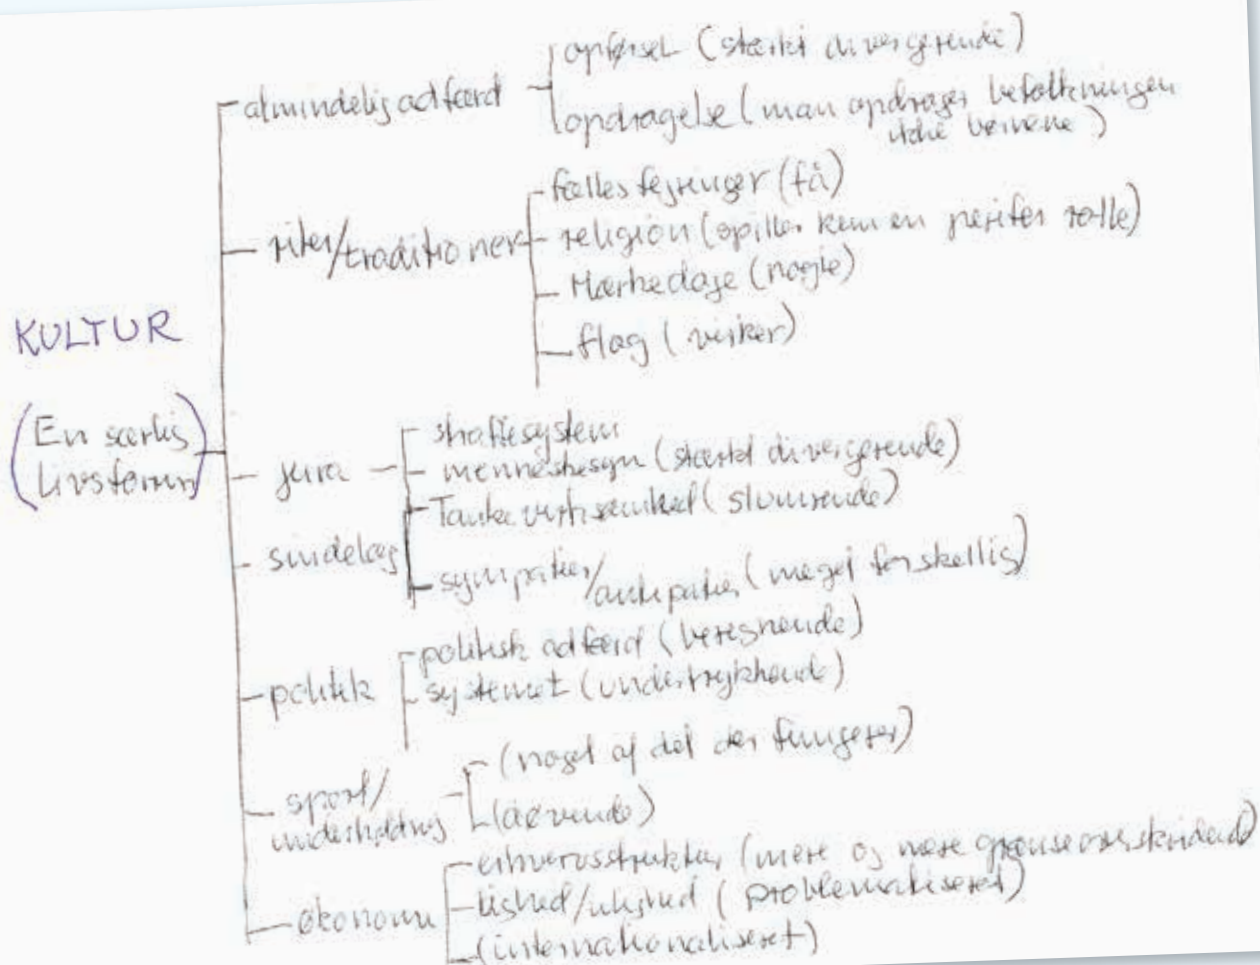 almindelig adfærd
opførsel (stærkt divergerende)
opdragelse (man opdrager befolkningen
ikke børnene)
riter/traditioner
fælles fejringer (få)
religion (spiller kun en perifer rolle)
Mærkedage (nogle)
flag (virker)
KULTUR
(En særlig
livsform)
jura
straffesystem
menneskesyn (stærkt divergerende)
sindelag
Tankevirksomhed (slumrende)
sympatier/antipatier (meget forskellig)
politik
politisk adfærd (beregnende)
systemet (undertrykkende)
sport/
underholdning
(noget af det der fungerer)
(døvende)
økonomi
erhvervsstruktur (mere og mere grænseoverskridende)
lighed/ulighed (problematiseret)
(internationaliseret)